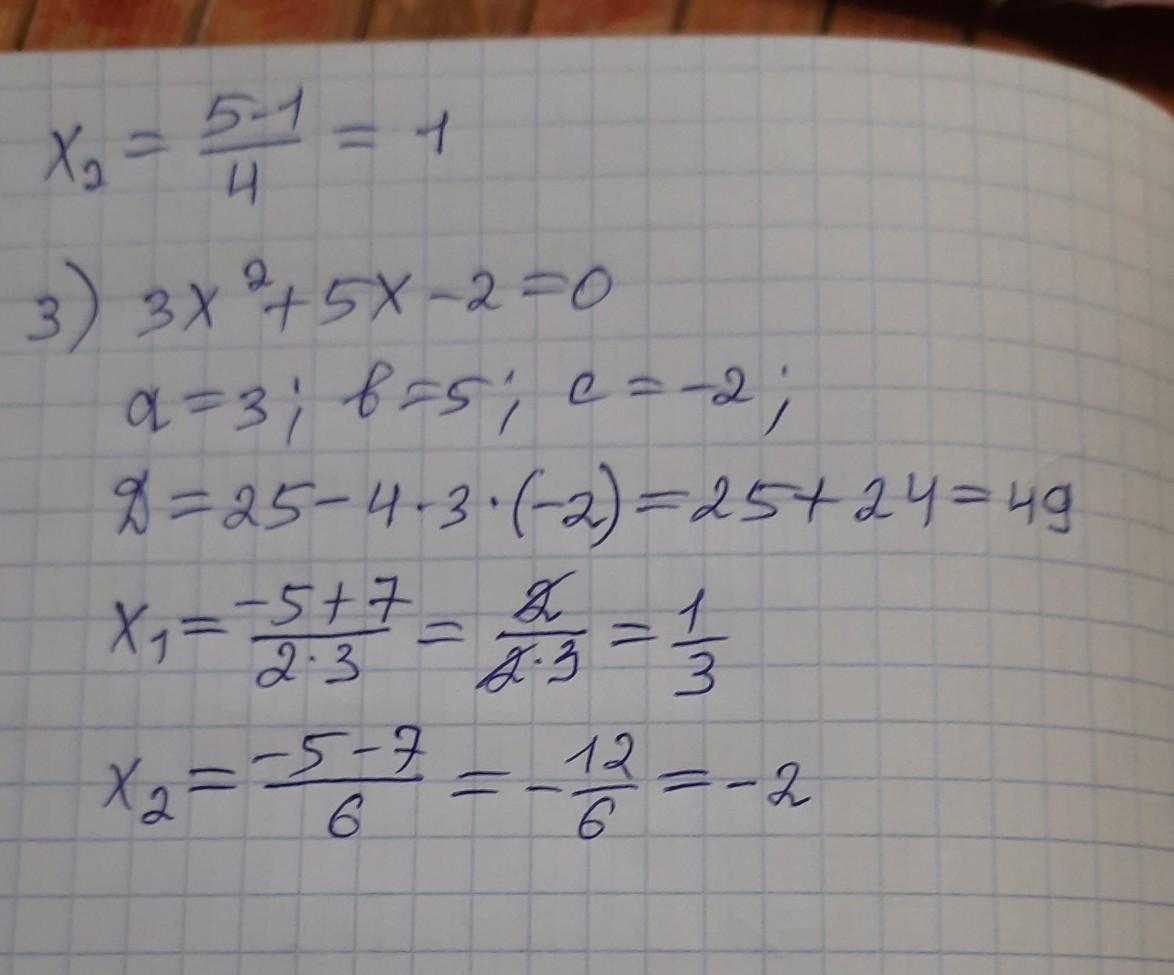 x₂ = (5-1)/4 = 1
3) 3x² + 5x - 2 = 0
a = 3; b = 5; c = -2;
D = 25 - 4 · 3 · (-2) = 25 + 24 = 49
x₁ = (-5+7)/(2·3) = 2/(2·3) = 1/3
x₂ = (-5-7)/6 = -12/6 = -2